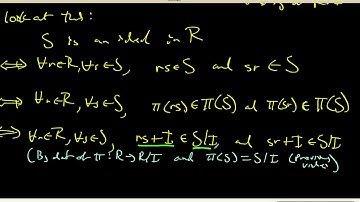 look at this:
S is an ideal in R
⟺ ∀r∈R, ∀s∈S, rs∈S and sr∈S
⟺ ∀r∈R, ∀s∈S, π(rs)∈π(S) and π(sr)∈π(S)
⟺ ∀r∈R, ∀s∈S, rs+I∈S/I, and sr+I∈S/I
(By def of π: R→R/I and π(S)=S/I (Previous video))